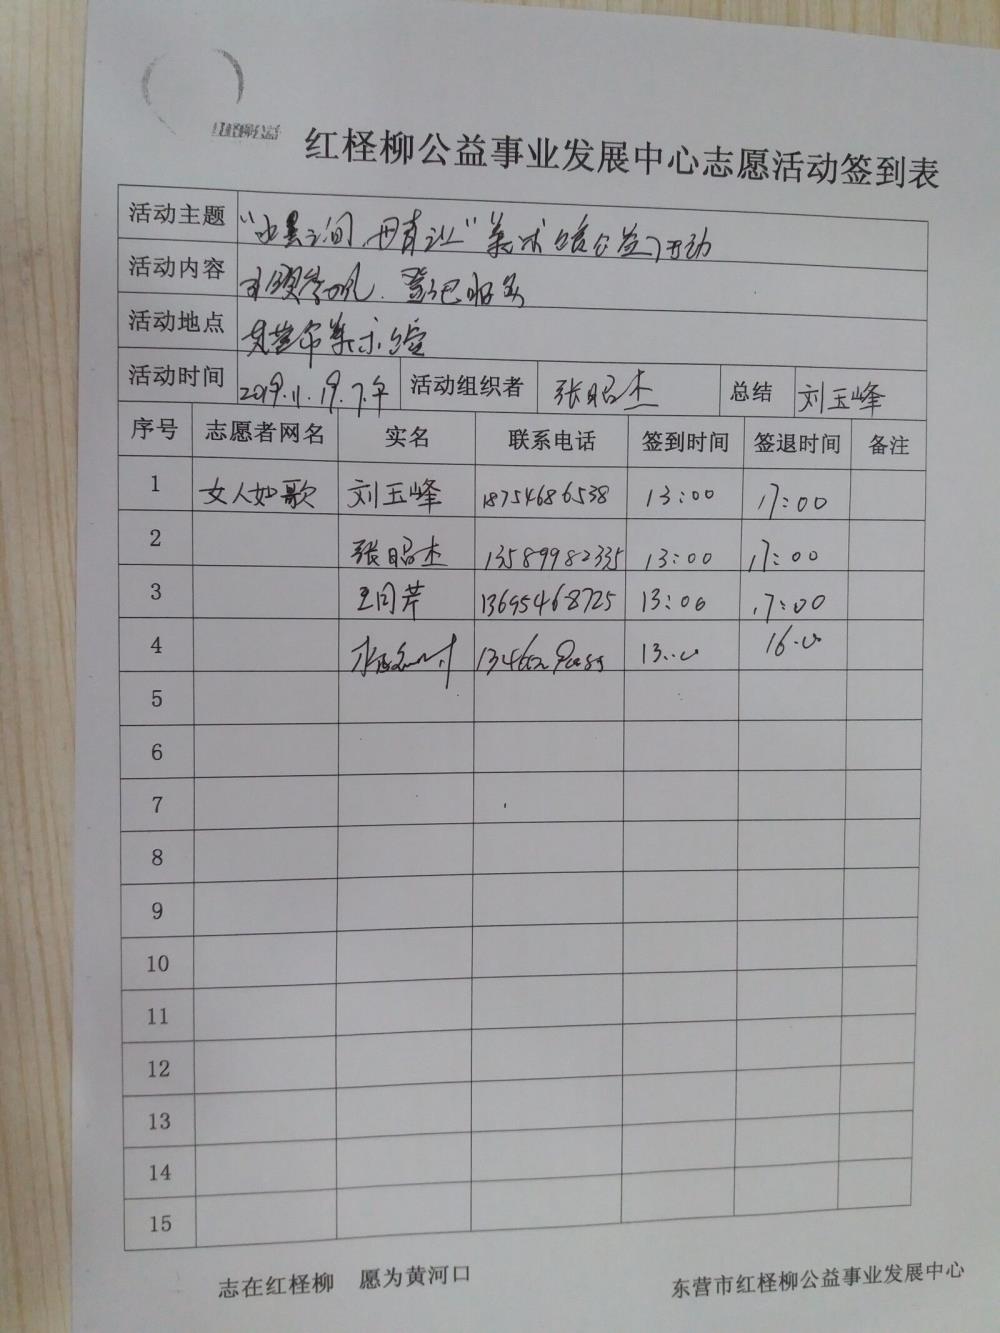 红柽柳公益
红柽柳公益事业发展中心志愿活动签到表
活动主题 “水墨之间 美术馆公益活动
活动内容 登记服务
活动地点 美术馆
活动时间 2019.11.19.下午 活动组织者 张昭杰 总结 刘玉峰
序号 志愿者网名 实名 联系电话 签到时间 签退时间 备注
1 女人如歌 刘玉峰 18754686538 13:00 17:00
2 张昭杰 13589982335 13:00 17:00
3 王同芹 13695468725 13:00 17:00
4
5
6
7
8
9
10
11
12
13
14
15
志在红柽柳 愿为黄河口
东营市红柽柳公益事业发展中心